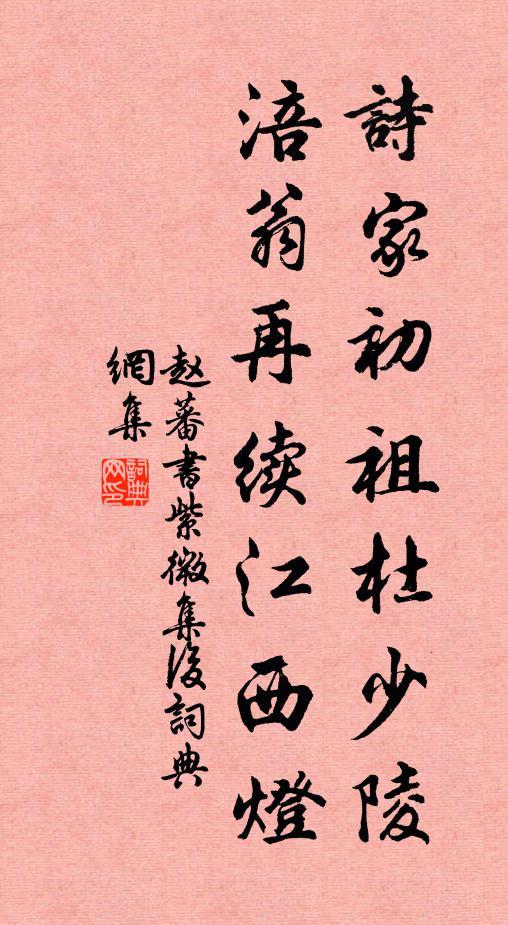 詩家初祖杜少陵
涪翁再续江西燈
赵蕃書紫微集後詞典
網集
詞典网印